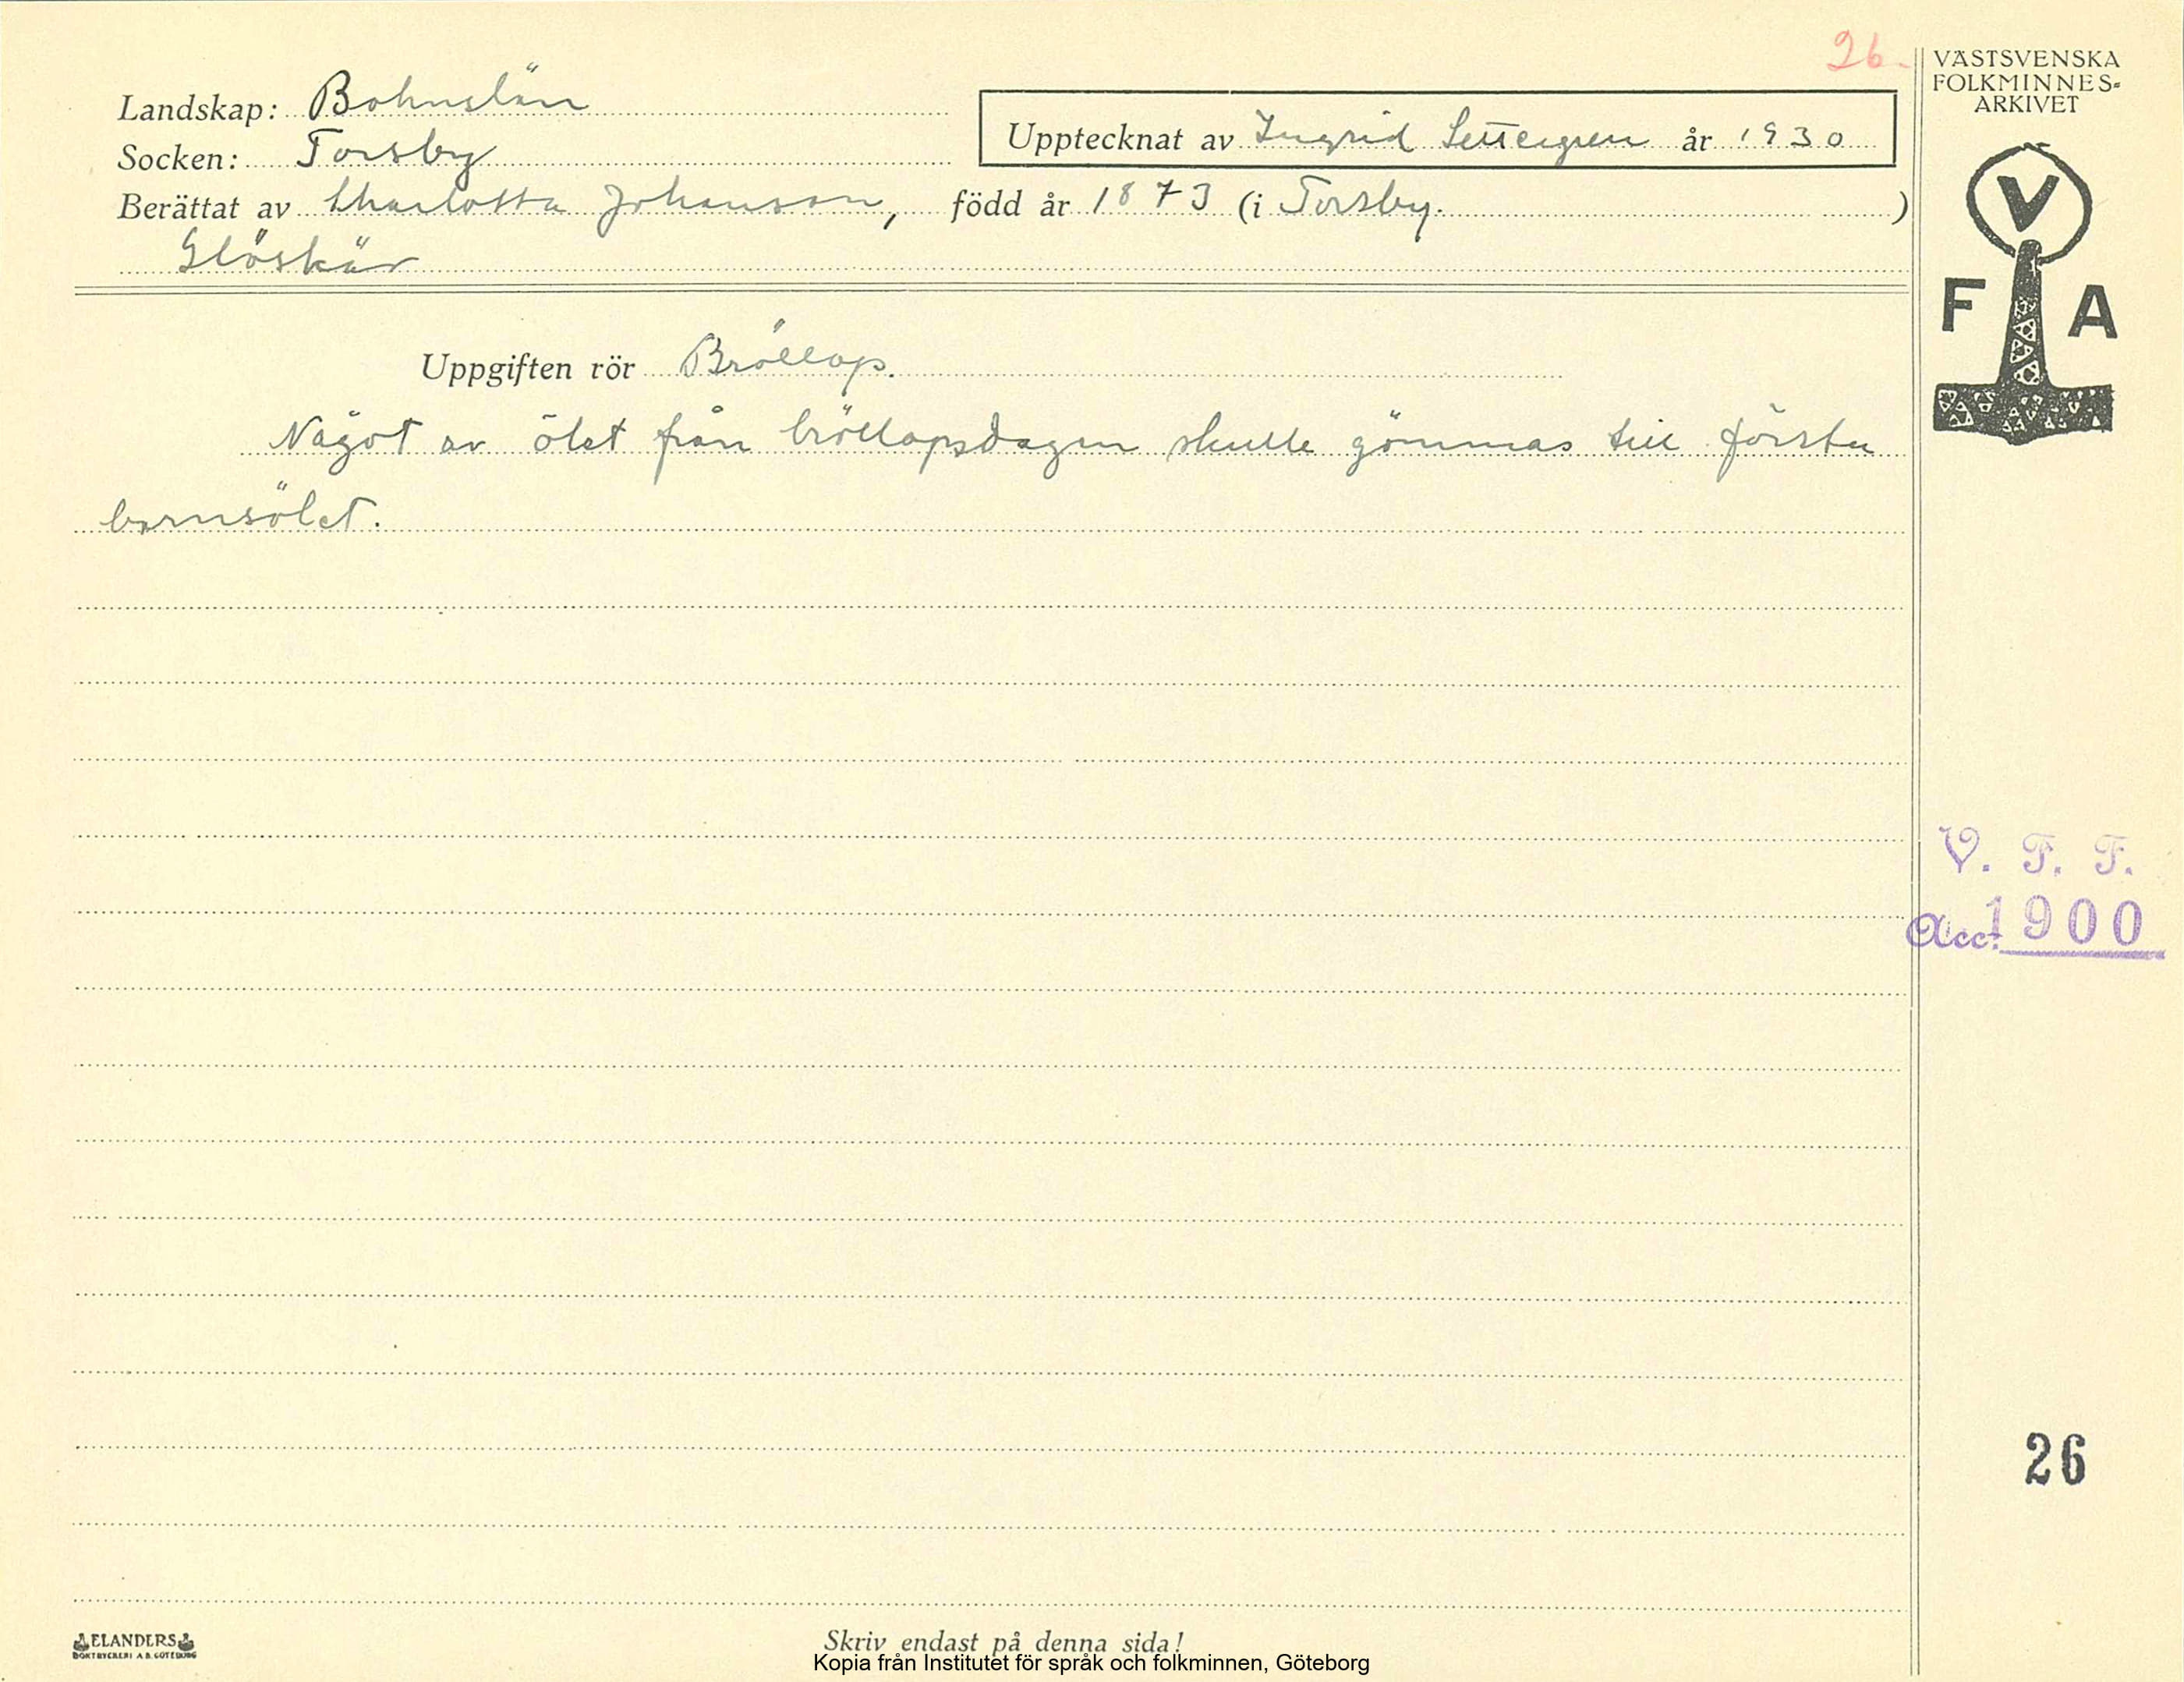 26.
VÄSTSVENSKA
FOLKMINNES-
ARKIVET
Landskap: Bohuslän
Upptecknat av Ingrid Settergren år 1930
Socken: Torsby
Berättat av Charlotta Johanson, född år 1873 (i Torsby. )
Glöskär
V
F A
Uppgiften rör Bröllop.
Något av ölet från bröllopsdagen skulle gömmas till första
barnsölet.
V. F. F.
Acc. 1900
26
ELANDERS
BOKTRYCKERI A.B. GÖTEBORG
Skriv endast på denna sida!
Kopia från Institutet för språk och folkminnen, Göteborg